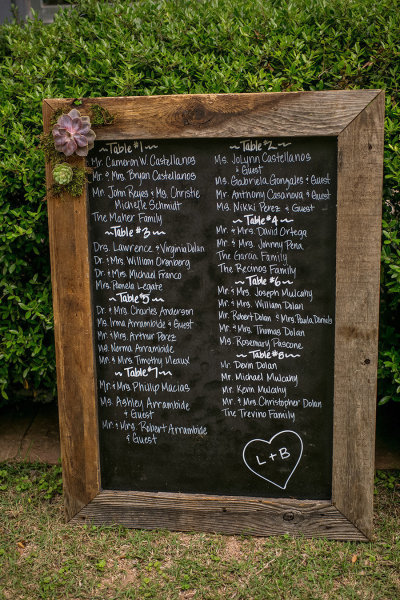 Table #1
Mr. Cameron W. Castellanos
Mr. & Mrs. Bryan Castellanos
Mr. John Keyes & Ms. Christie
Michelle Schmidt
The Maher Family
Table #3
Drs. Lawrence & Virginia Dolan
Dr. & Mrs. William Orenberg
Dr. & Mrs. Michael Franco
Mrs. Pamela Legate
Table #5
Dr. & Mrs. Charles Anderson
Ms. Irma Arrambide & Guest
Mr. & Mrs. Arthur Perez
Ms. Norma Arrambide
Mr. & Mrs. Timothy Meaux
Table #7
Mr. & Mrs. Phillip Macias
Ms. Ashley Arrambide
& Guest
Mr. & Mrs. Robert Arrambide
& Guest
Table #2
Ms. Jolynn Castellanos
& Guest
Ms. Gabriela Gonzales & Guest
Mr. Anthony Casanova & Guest
Ms. Nikki Perez & Guest
Table #4
Mr. & Mrs. David Ortega
Mr. & Mrs. Johnny Pena
The Garcia Family
The Recinos Family
Table #6
Mr. & Mrs. Joseph Mulcahy
Mr. & Mrs. William Dolan
Mr. Robert Dolan & Mrs. Paula Daniels
Mr. & Mrs. Thomas Dolan
Ms. Rosemary Pascone
Table #8
Mr. Devin Dolan
Mr. Michael Mulcahy
Mr. Kevin Mulcahy
Mr. & Mrs. Christopher Dolan
The Trevino Family
L + B